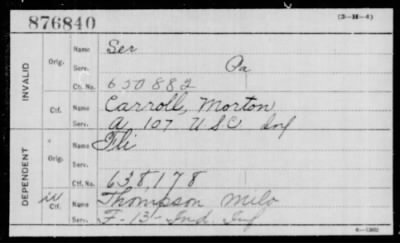 876840
(3-H-4)
INVALID
Orig.
Name Ser
Serv. Pa
Ctf. No. 650882
Ctf.
Name Carroll, Morton
Serv. A 107 USC Inf
DEPENDENT
Orig.
Name
Serv.
Ctf. No. 638,178
Ctf.
Name Thompson Milo
Serv. F-13-Ind Inf